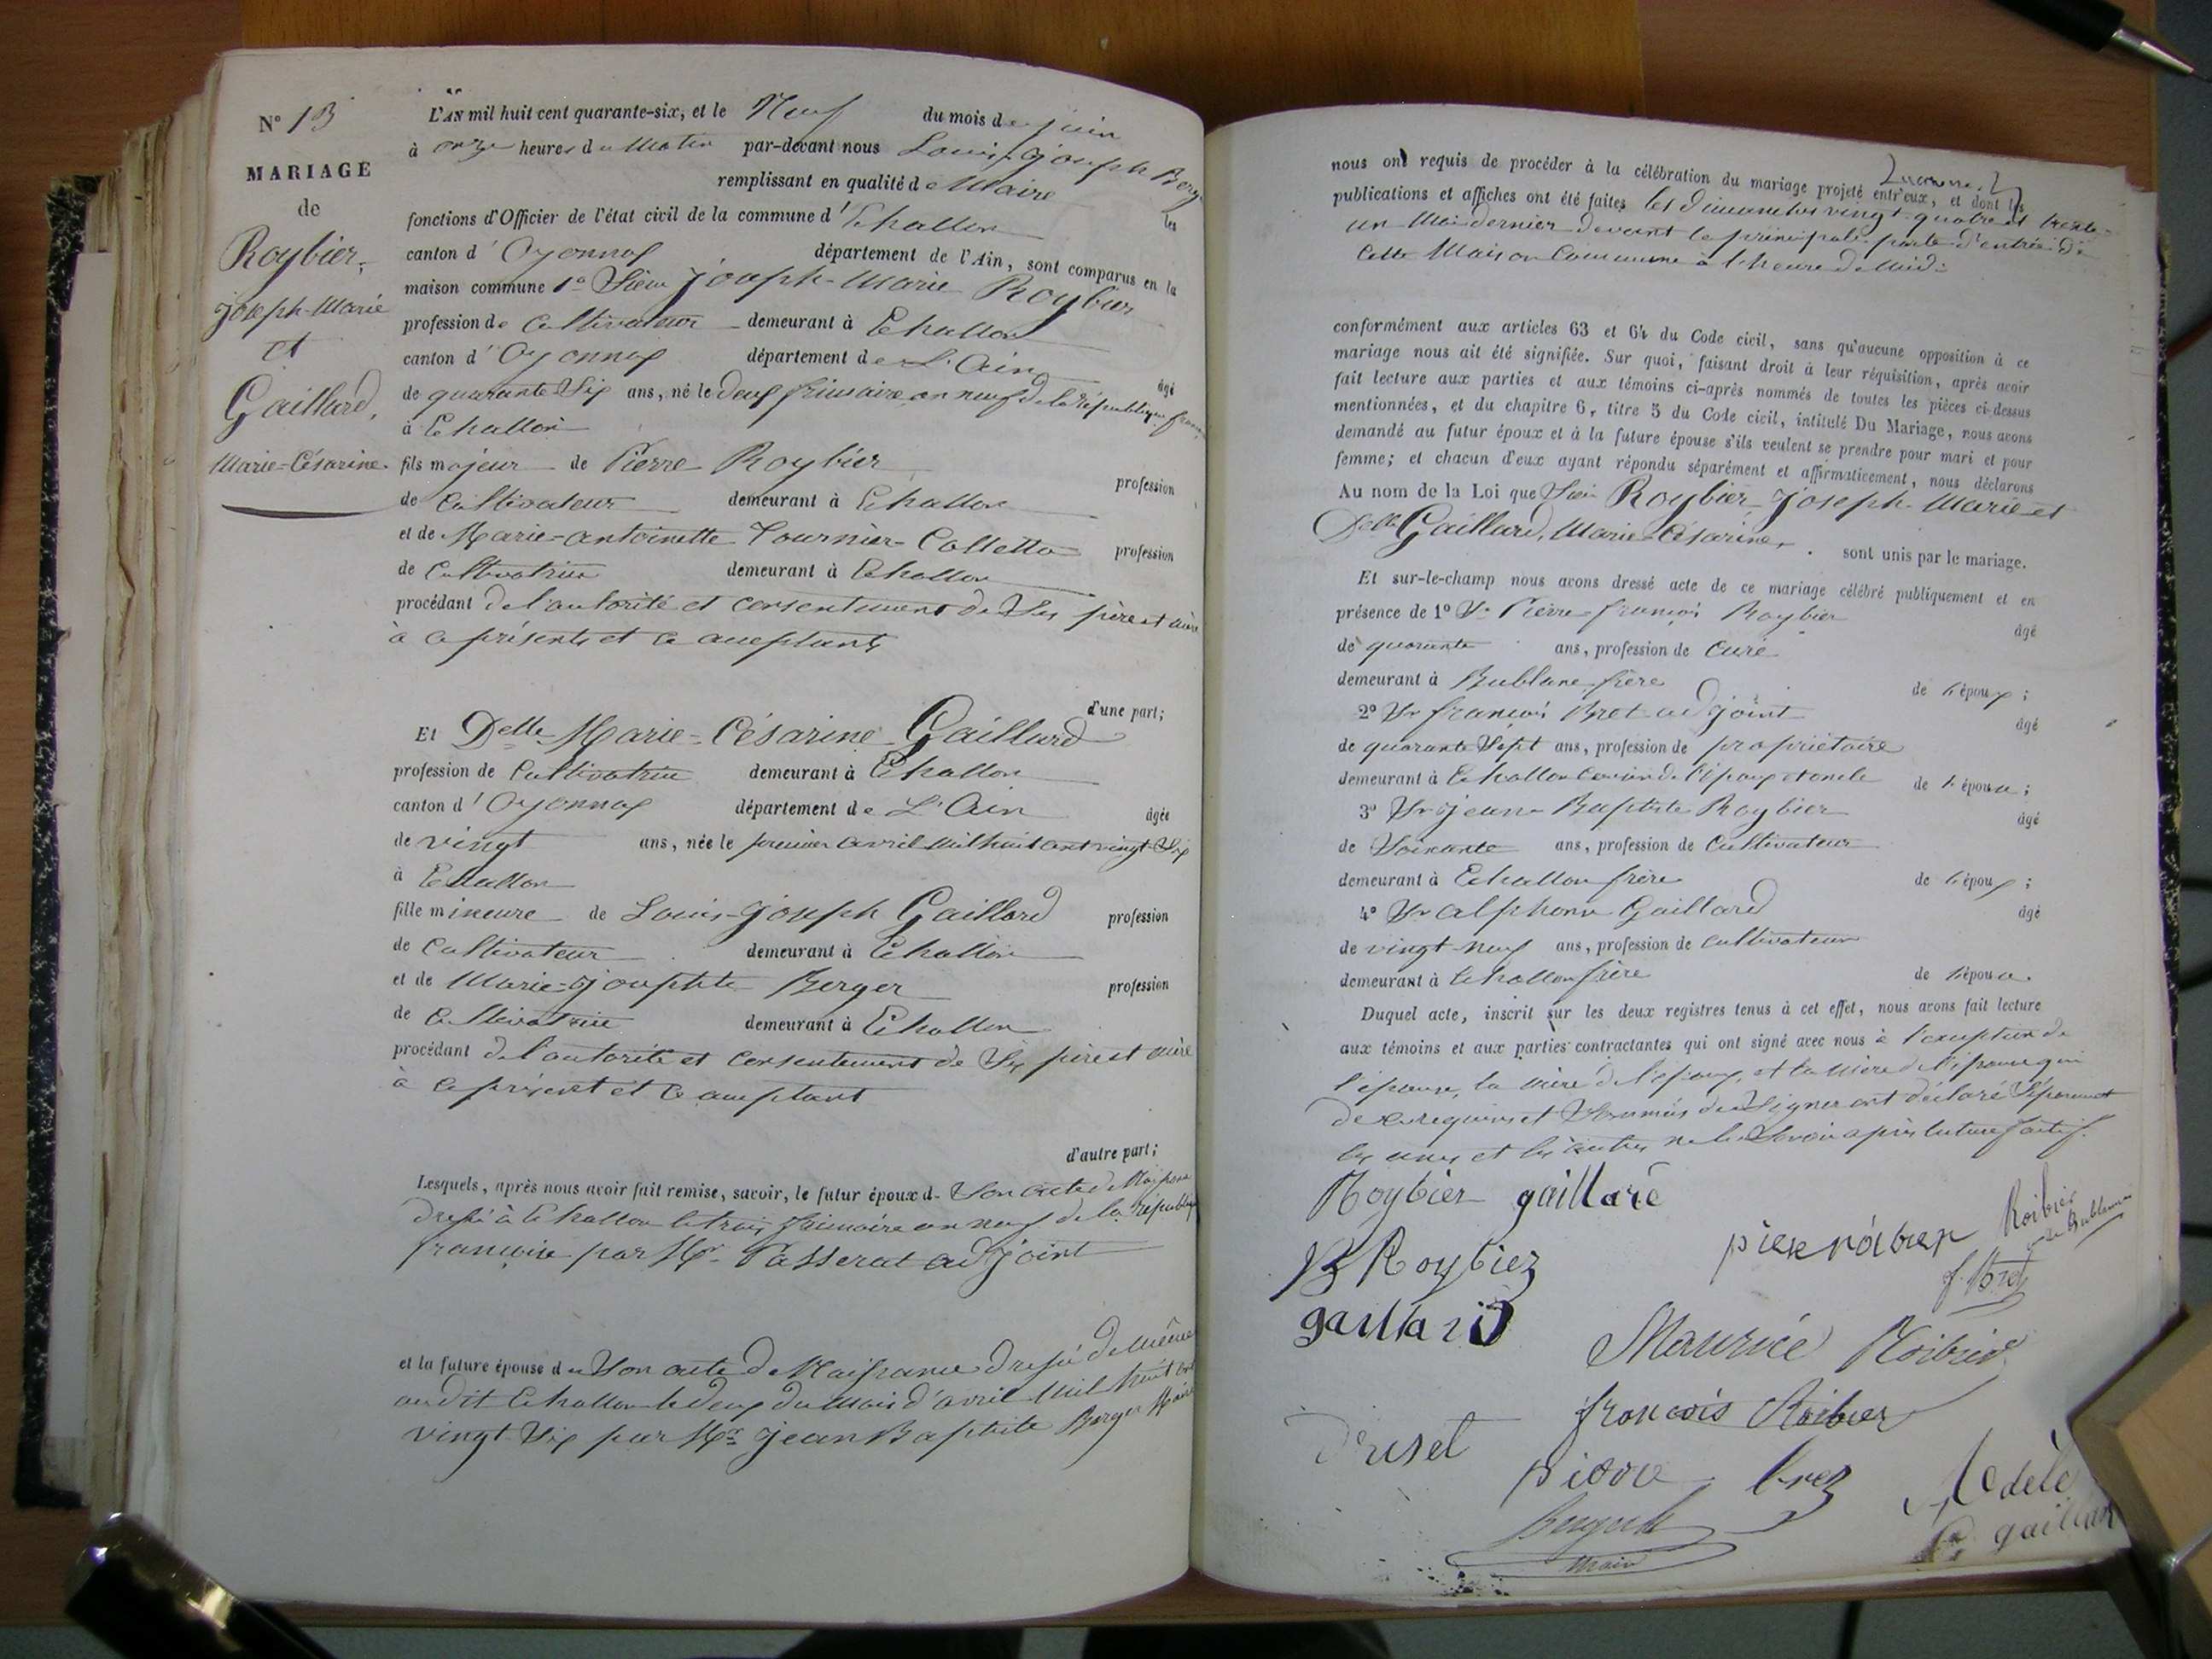 N° 13
MARIAGE
de
Roybier,
Joseph-Marie
et
Gaillard,
Marie-Césarine.
L'AN mil huit cent quarante-six, et le Neuf du mois de juin
à onze heures du Matin par-devant nous Louis-Joseph Berger
remplissant en qualité de Maire les
fonctions d'Officier de l'état civil de la commune d'Echallon
canton d'Oyonnax département de l'Ain, sont comparus en la
maison commune 1° Sieur Joseph-Marie Roybier
profession de Cultivateur demeurant à Echallon
canton d'Oyonnax département de L'Ain âgé
de quarante Six ans, né le deux frimaire an neuf de la république
à Echallon
fils majeur de Pierre Roybier profession
de Cultivateur demeurant à Echallon
et de Marie-antoinette Tournier-Colletta profession
de Cultivatrice demeurant à Echallon
procédant de l'autorité et consentement de Ses père et mère
à ce présents et ce acceptants
d'une part;
Et Delle Marie-Césarine Gaillard
profession de Cultivatrice demeurant à Echallon
canton d'Oyonnax département de L'Ain âgée
de vingt ans, née le premier avril mil huit cent vingt-Six
à Echallon
fille mineure de Louis-Joseph Gaillard profession
de Cultivateur demeurant à Echallon
et de Marie-Josephte Berger profession
de Cultivatrice demeurant à Echallon
procédant de l'autorité et consentement de Ses père et mère
à ce présent et ce acceptant
d'autre part;
Lesquels, après nous avoir fait remise, savoir, le futur époux d- Son acte de Naissance
dressé à Echallon le trois frimaire an neuf de la république
françoise par Mr Passerat adjoint
et la future épouse de Son acte de Naissance dressé de même
au dit Echallon le deux du mois d'avril mil huit cent
vingt Six par Mr Jean Baptiste Berger Maire
nous ont requis de procéder à la célébration du mariage projeté entr'eux, et dont les
publications et affiches ont été faites les Dimanches vingt-quatre et trente-
un Mai dernier devant la principale porte d'entrée de
cette Maison Commune à l'heure de Midi
conformément aux articles 63 et 64 du Code civil, sans qu'aucune opposition à ce
mariage nous ait été signifiée. Sur quoi, faisant droit à leur réquisition, après avoir
fait lecture aux parties et aux témoins ci-après nommés de toutes les pièces ci-dessus
mentionnées, et du chapitre 6, titre 5 du Code civil, intitulé Du Mariage, nous avons
demandé au futur époux et à la future épouse s'ils veulent se prendre pour mari et pour
femme; et chacun d'eux ayant répondu séparément et affirmativement, nous déclarons
Au nom de la Loi que Sieur Roybier Joseph-Marie et
Delle Gaillard, Marie-Césarine, sont unis par le mariage.
Et sur-le-champ nous avons dressé acte de ce mariage célébré publiquement et en
présence de 1° Sr Pierre-françois Roybier âgé
de quarante ans, profession de Curé
demeurant à Bublane frère de l'époux;
2° Sr françois Bret adjoint âgé
de quarante Sept ans, profession de propriétaire
demeurant à Echallon cousin de l'époux et oncle de l'épouse;
3° Sr Jean Baptiste Roybier âgé
de Soixante ans, profession de Cultivateur
demeurant à Echallon frère de l'époux;
4° Sr alphonse Gaillard âgé
de vingt-neuf ans, profession de cultivateur
demeurant à Echallon frère de l'épouse.
Duquel acte, inscrit sur les deux registres tenus à cet effet, nous avons fait lecture
aux témoins et aux parties contractantes qui ont signé avec nous à l'exception de
l'épouse, la mère de l'époux, et la mère de l'épouse qui
de ce requises et Sommés de Signer ont déclaré Séparément
les unes et les autres ne le Savoir après lecture faite.
Roybier gaillard
Roibier
B Roybier
f. Bret
gaillard
Maurice Roibier
françois Roibier
pierre bret
Adèle
gaillard
Berger
Maire